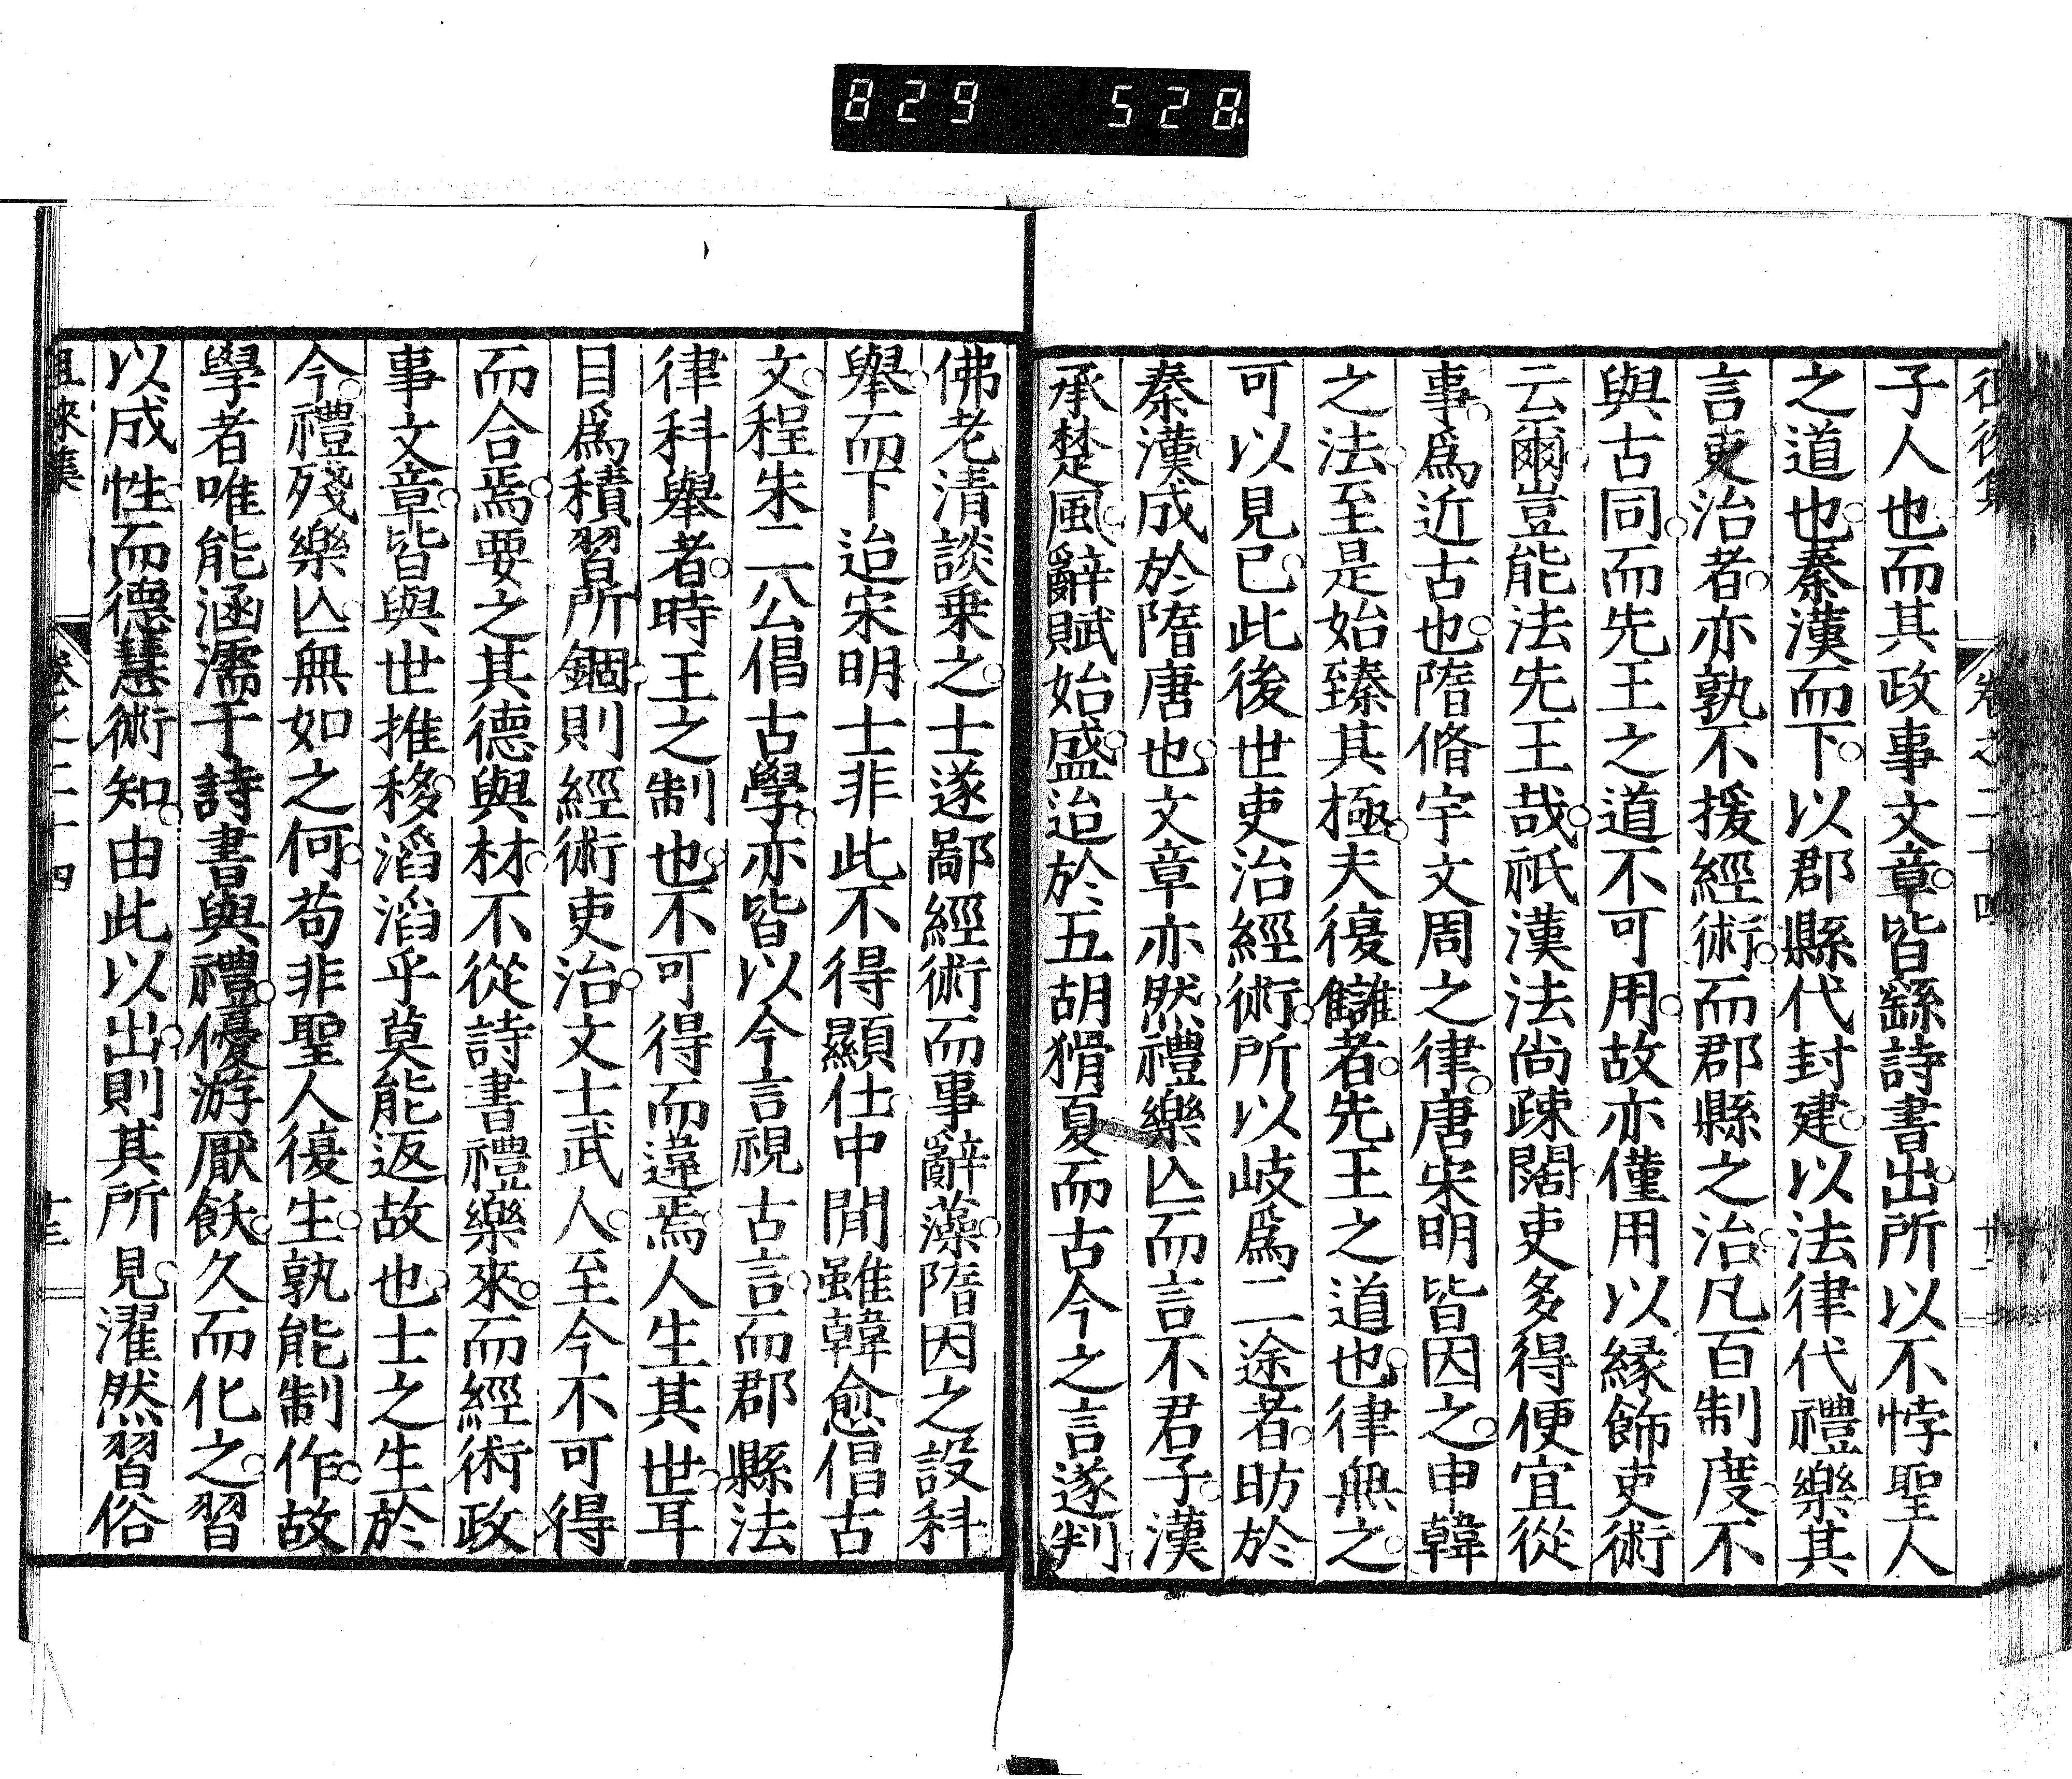 829 528
徂徠集 卷之二十四 十二
子人也而其政事文章皆繇詩書出所以不悖聖人
之道也秦漢而下以郡縣代封建以法律代禮樂其
言吏治者亦孰不援經術而郡縣之治凡百制度不
與古同而先王之道不可用故亦僅用以緣飾吏術
云爾豈能法先王哉祇漢法尚疎闊吏多得便宜從
事爲近古也隋脩宇文周之律唐宋明皆因之申韓
之法至是始臻其極夫復讎者先王之道也律無之
可以見已此後世吏治經術所以歧爲二途者昉於
秦漢成於隋唐也文章亦然禮樂亾而言不君子漢
承楚風辭賦始盛迨於五胡猾夏而古今之言遂判
佛老清談乗之士遂鄙經術而事辭藻隋因之設科
舉而下迨宋明士非此不得顯仕中間雖韓愈倡古
文程朱二公倡古學亦皆以今言視古言而郡縣法
律科舉者時王之制也不可得而違焉人生其世耳
目爲積習所錮則經術吏治文士武人至今不可得
而合焉要之其德與材不從詩書禮樂來而經術政
事文章皆與世推移滔滔乎莫能返故也士之生於
今禮殘樂亾無如之何苟非聖人復生孰能制作故
學者唯能涵濡于詩書與禮優游厭飫久而化之習
以成性而德慧術知由此以出則其所見濯然習俗
徂徠集 卷之二十四 十三